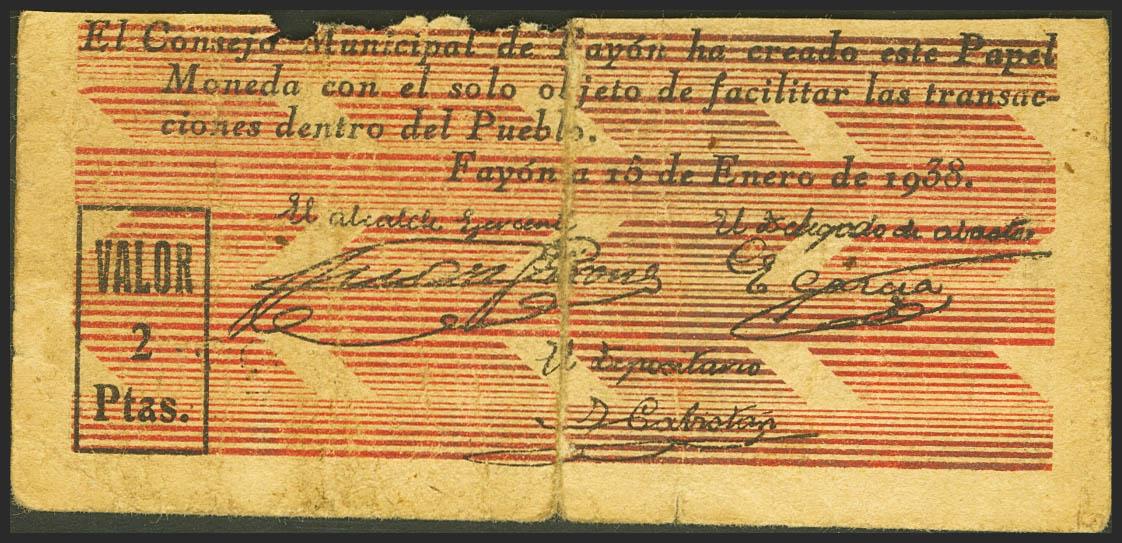 El Consejo Municipal de Fayón ha creado este Papel
Moneda con el solo objeto de facilitar las transac-
ciones dentro del Pueblo.
Fayón a 15 de Enero de 1938.
El Alcalde Ejerciente
El Delegado de abastos
E García
VALOR
2
Ptas.
El depositario